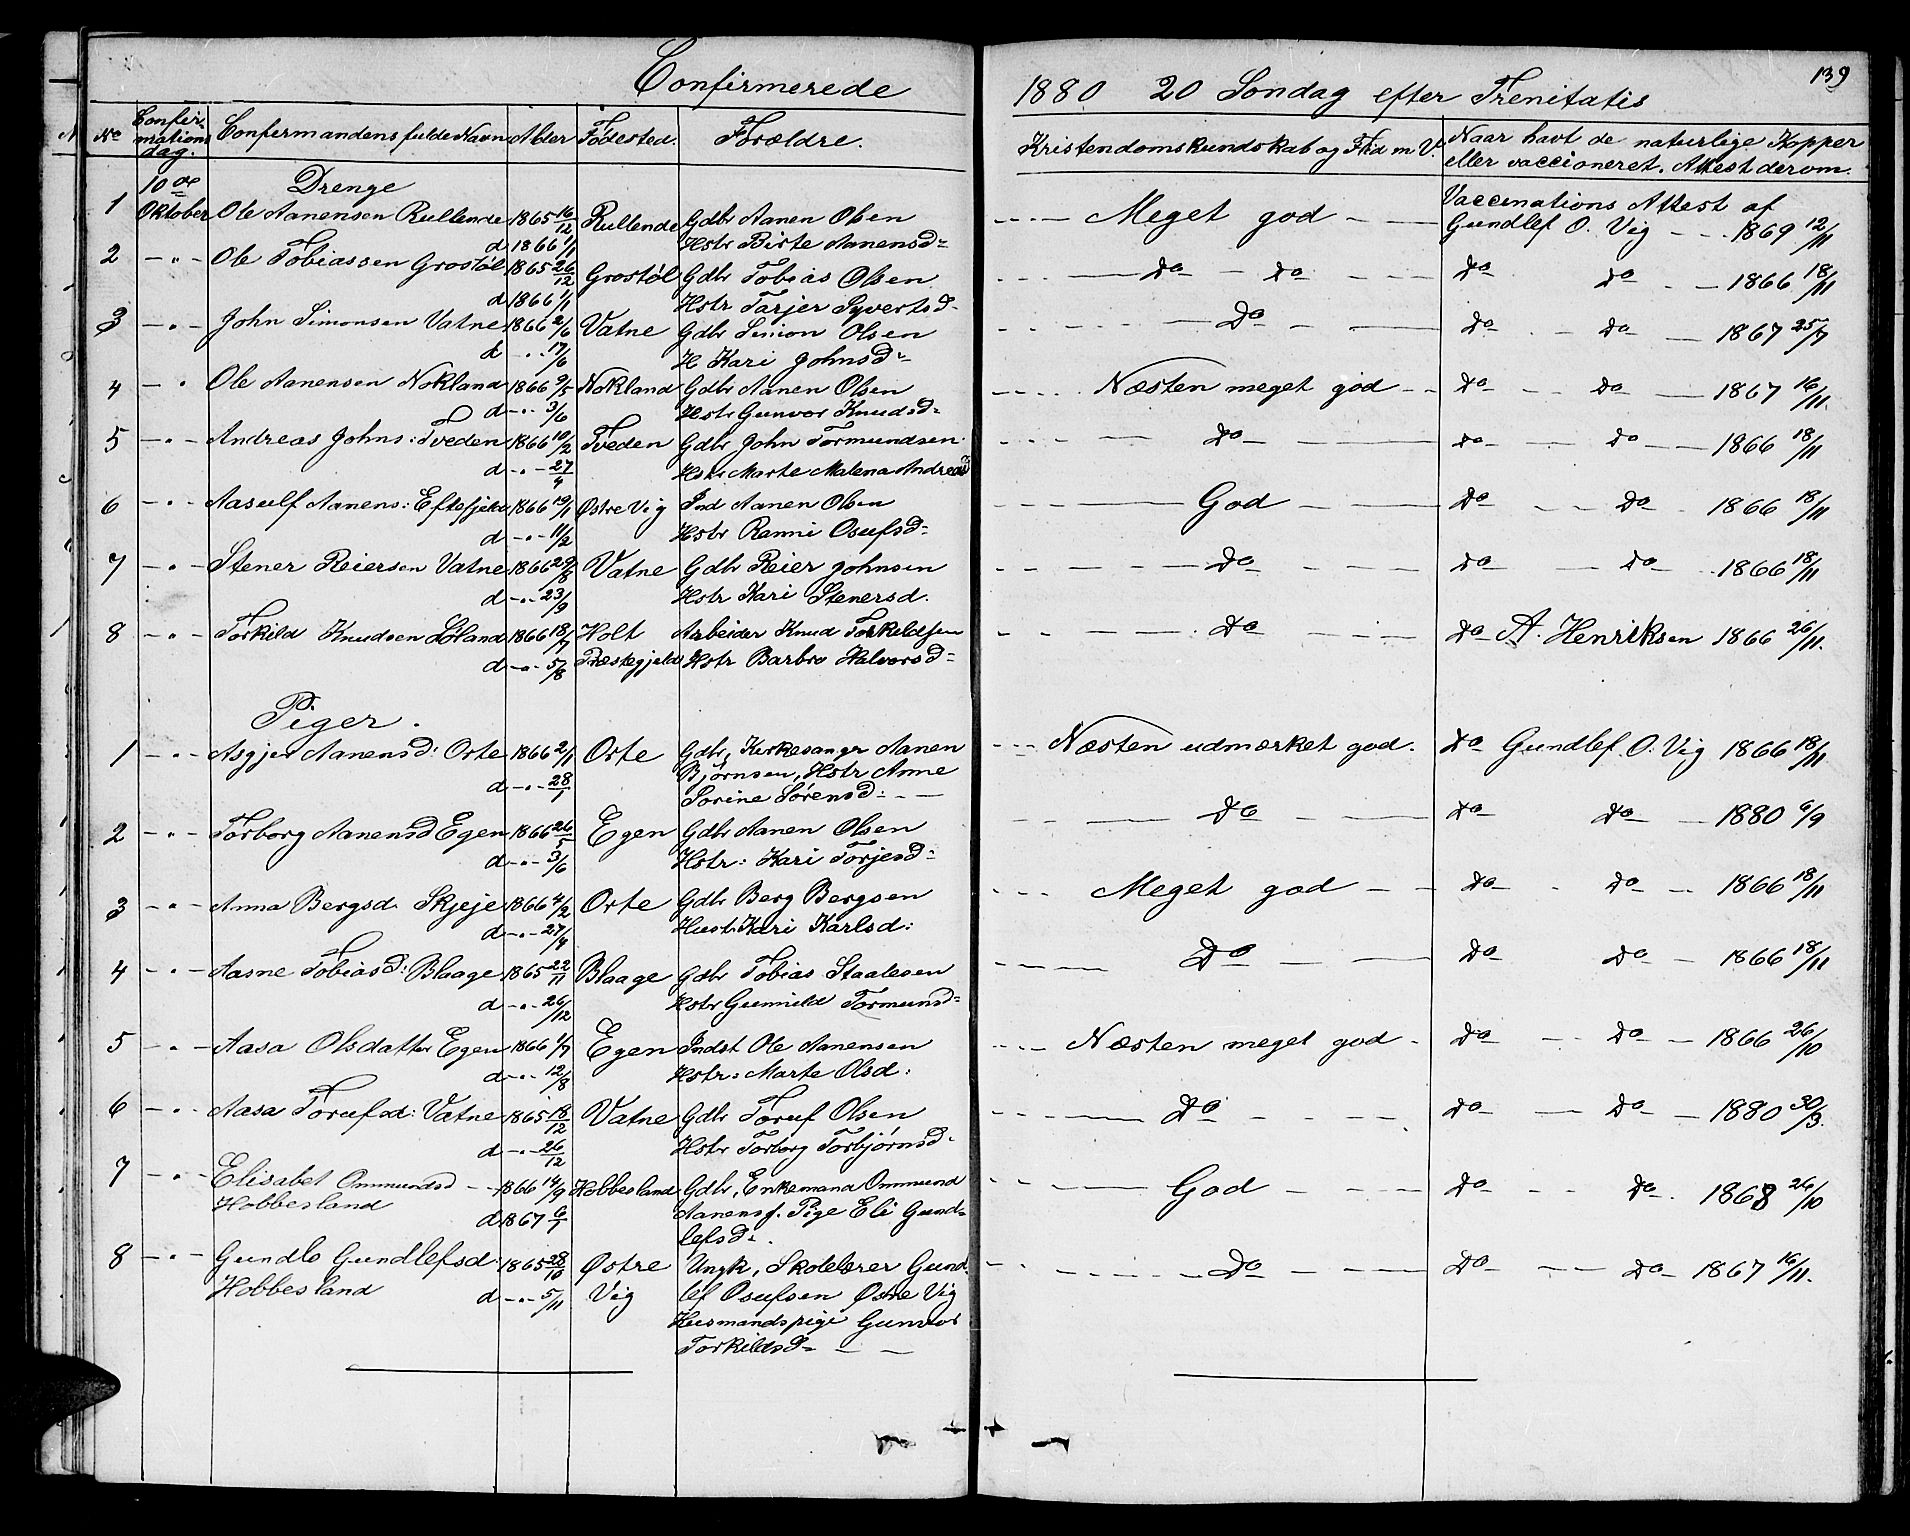 Confirmerede 1880 20 Søndag efter Trenitatis 139
No Confirmations dag. Confermandens fulde Navn Alder Fødested. Forældre. Kristendomskundskab og Flid m V. Naar havt de naturlige Kopper
eller vaccioneret. Attest derom.
10de Drenge
1 Oktober Ole Aanensen Rullende 1865 16/12 Rullende Gdbr Aanen Olsen Meget god Vaccenations Attest af
d 1866 1/1 Hstr Birte Aanensd Gundlef O. Vig 1869 12/11
2 - " - Ole Tobiassen Grostøl 1865 26/12 Grostøl Gdbr Tobias Olsen do do do do 1866 18/11
d 1866 1/1 Hstr Tarjer Syvertsd
3 - " - John Simonsen Vatne 1866 2/6 Vatne Gdbr Simon Olsen Do do do 1867 25/7
d - " - 17/6 H Kari Johnsd
4 - " Ole Aanensen Nokland 1866 9/5 Nokland Gdbr Aanen Olsen Næsten meget god do do 1867 16/11.
d - " - 3/6 Hstr Gunvor Knudsd
5 - " - Andreas Johns: Tveden 1866 10/2 Tveden Gdbr John Tormundsen do do do 1866 18/11
d - " - 27/4 Hstr Marte Malena Andreasd
6 - " - Aasulf Aanens: 1866 19/1 Østre Vig Ind Aanen Olsen God do do 1866 18/11
d - " - 11/2 Hstr Ranni Osufsd
7 - " - Stener Reiersen Vatne 1866 29/8 Vatne Gdbr Reier Johnsen do do do 1866 18/11
d - " - 23/9 Hstr Kari Stenersd.
8 - " - Torkild Knudsen Løland 1866 18/7 Holt Arbeider Knud Torkildsen do do A. Henriksen 1866 26/11.
d - " - 5/8 Præstegjeld Hstr Barbro Halvorsd
Piger.
1 - " - Asgjer Aanensd: Orte 1866 2/1 Orte Gdbr, Kirkesanger Aanen Næsten udmærket god. do Gundlef O. Vig 1866 18/11
d - " - 28/1 Bjørnsen, Hstr Anne
Sorine Sørensd:
2 - " - Torborg Aanensd Egen 1866 26/5 Egen Gdbr Aanen Olsen do do do 1880 6/9
d - " - 3/6 Hstr: Kari Torjesd
3 - " - Anna Bergsd. Skjeje 1866 4/2 Orte Gdbr Berg Bergsen Meget god do do 1866 18/11
d - " - 27/4 Hust: Kari Karlsd:
4 - " - Aasne Tobiasd: Blaage 1865 22/11 Blaage Gdbr Tobias Staalesen Do do do 1866 18/11
d - " - 26/12 Hstr Gunnild Tormunsd
5 - " - Aasa Olsdatter Egen 1866 1/7 Egen Indst Ole Aanensen Næsten meget god do do 1866 26/10
d - " - 12/8 Hstr: Marte Olsd:
6 - " - Aasa Torufsd: Vatne 1865 18/12 Vatne Gdbr Toruf Olsen do do do 1880 30/3.
d - " - 26/12 Hstr Torborg Torbjørnsd
7 - " - Elisabet Ommundsd 1866 14/9 Hobbesland Gdbr, Enkemand Ommund God do do. 1868 26/10
Hobbesland d 1867 6/1 Aanensf. Pige Eli Gund-
lefsd.
8 - " - Gundlo Gundlefsd 1865 28/10 Østre Ungk, Skolelærer Gund- do do do 1867 16/11.
Hobbesland d - " - 5/11 Vig lef Osufsen Østre Vig
Husmandspige Gunvor
Torkildsd